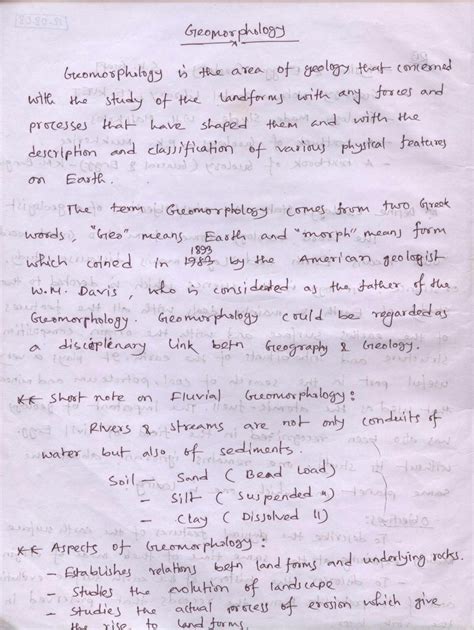 Geomorphology
Geomorphology is the area of geology that concerned
with the study of the landforms with any forces and
processes that have shaped them and with the
description and classification of various physical features
on Earth.
The term Geomorphology comes from two Greek
words, "Geo" means Earth and "morph" means form
1893
which coined in 1983 by the American geologist
W.M. Davis, who is considered as the father of the
Geomorphology. Geomorphology could be regarded as
a disciplenary link betn Geography & Geology.
** Short note on Fluvial Geomorphology:
Rivers & streams are not only conduits of
water but also of sediments.
Soil - Sand (Bead Load)
- Silt (Suspended ")
- Clay (Dissolved ")
** Aspects of Geomorphology:
- Establishes relations betn land forms and underlying rocks.
- Studies the evolution of landscape
- Studies the actual process of erosion which give
the rise to land forms.